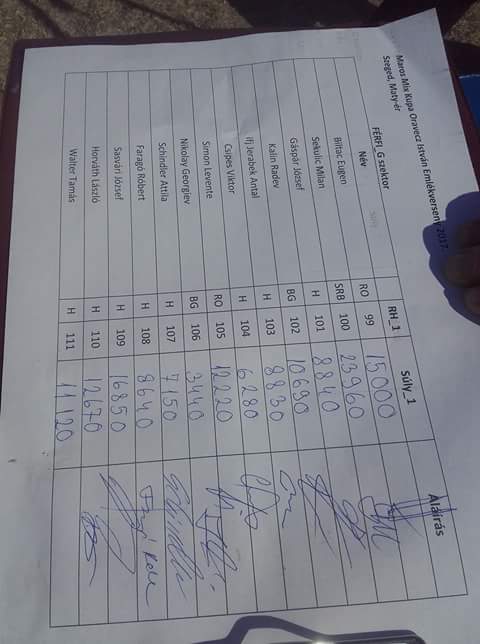 Maros Mix Kupa Oravecz István Emlékverseny 2017.
Szeged, Maty-ér
FÉRFI_G szektor
Név RH_1 Súly_1 Aláírás
Biltac Eugen RO 99 15000
Sekulic Milan SRB 100 23960
Gáspár József H 101 8840
Kalin Radev BG 102 10690
ifj Jerabek Antal H 103 8830
Csipes Viktor H 104 6280
Simon Levente RO 105 12220
Nikolay Georgiev BG 106 3440
Schindler Attila H 107 7150
Faragó Róbert H 108 8640
Sasvári József H 109 16850
Horváth László H 110 12670
Walter Tamás H 111 11120